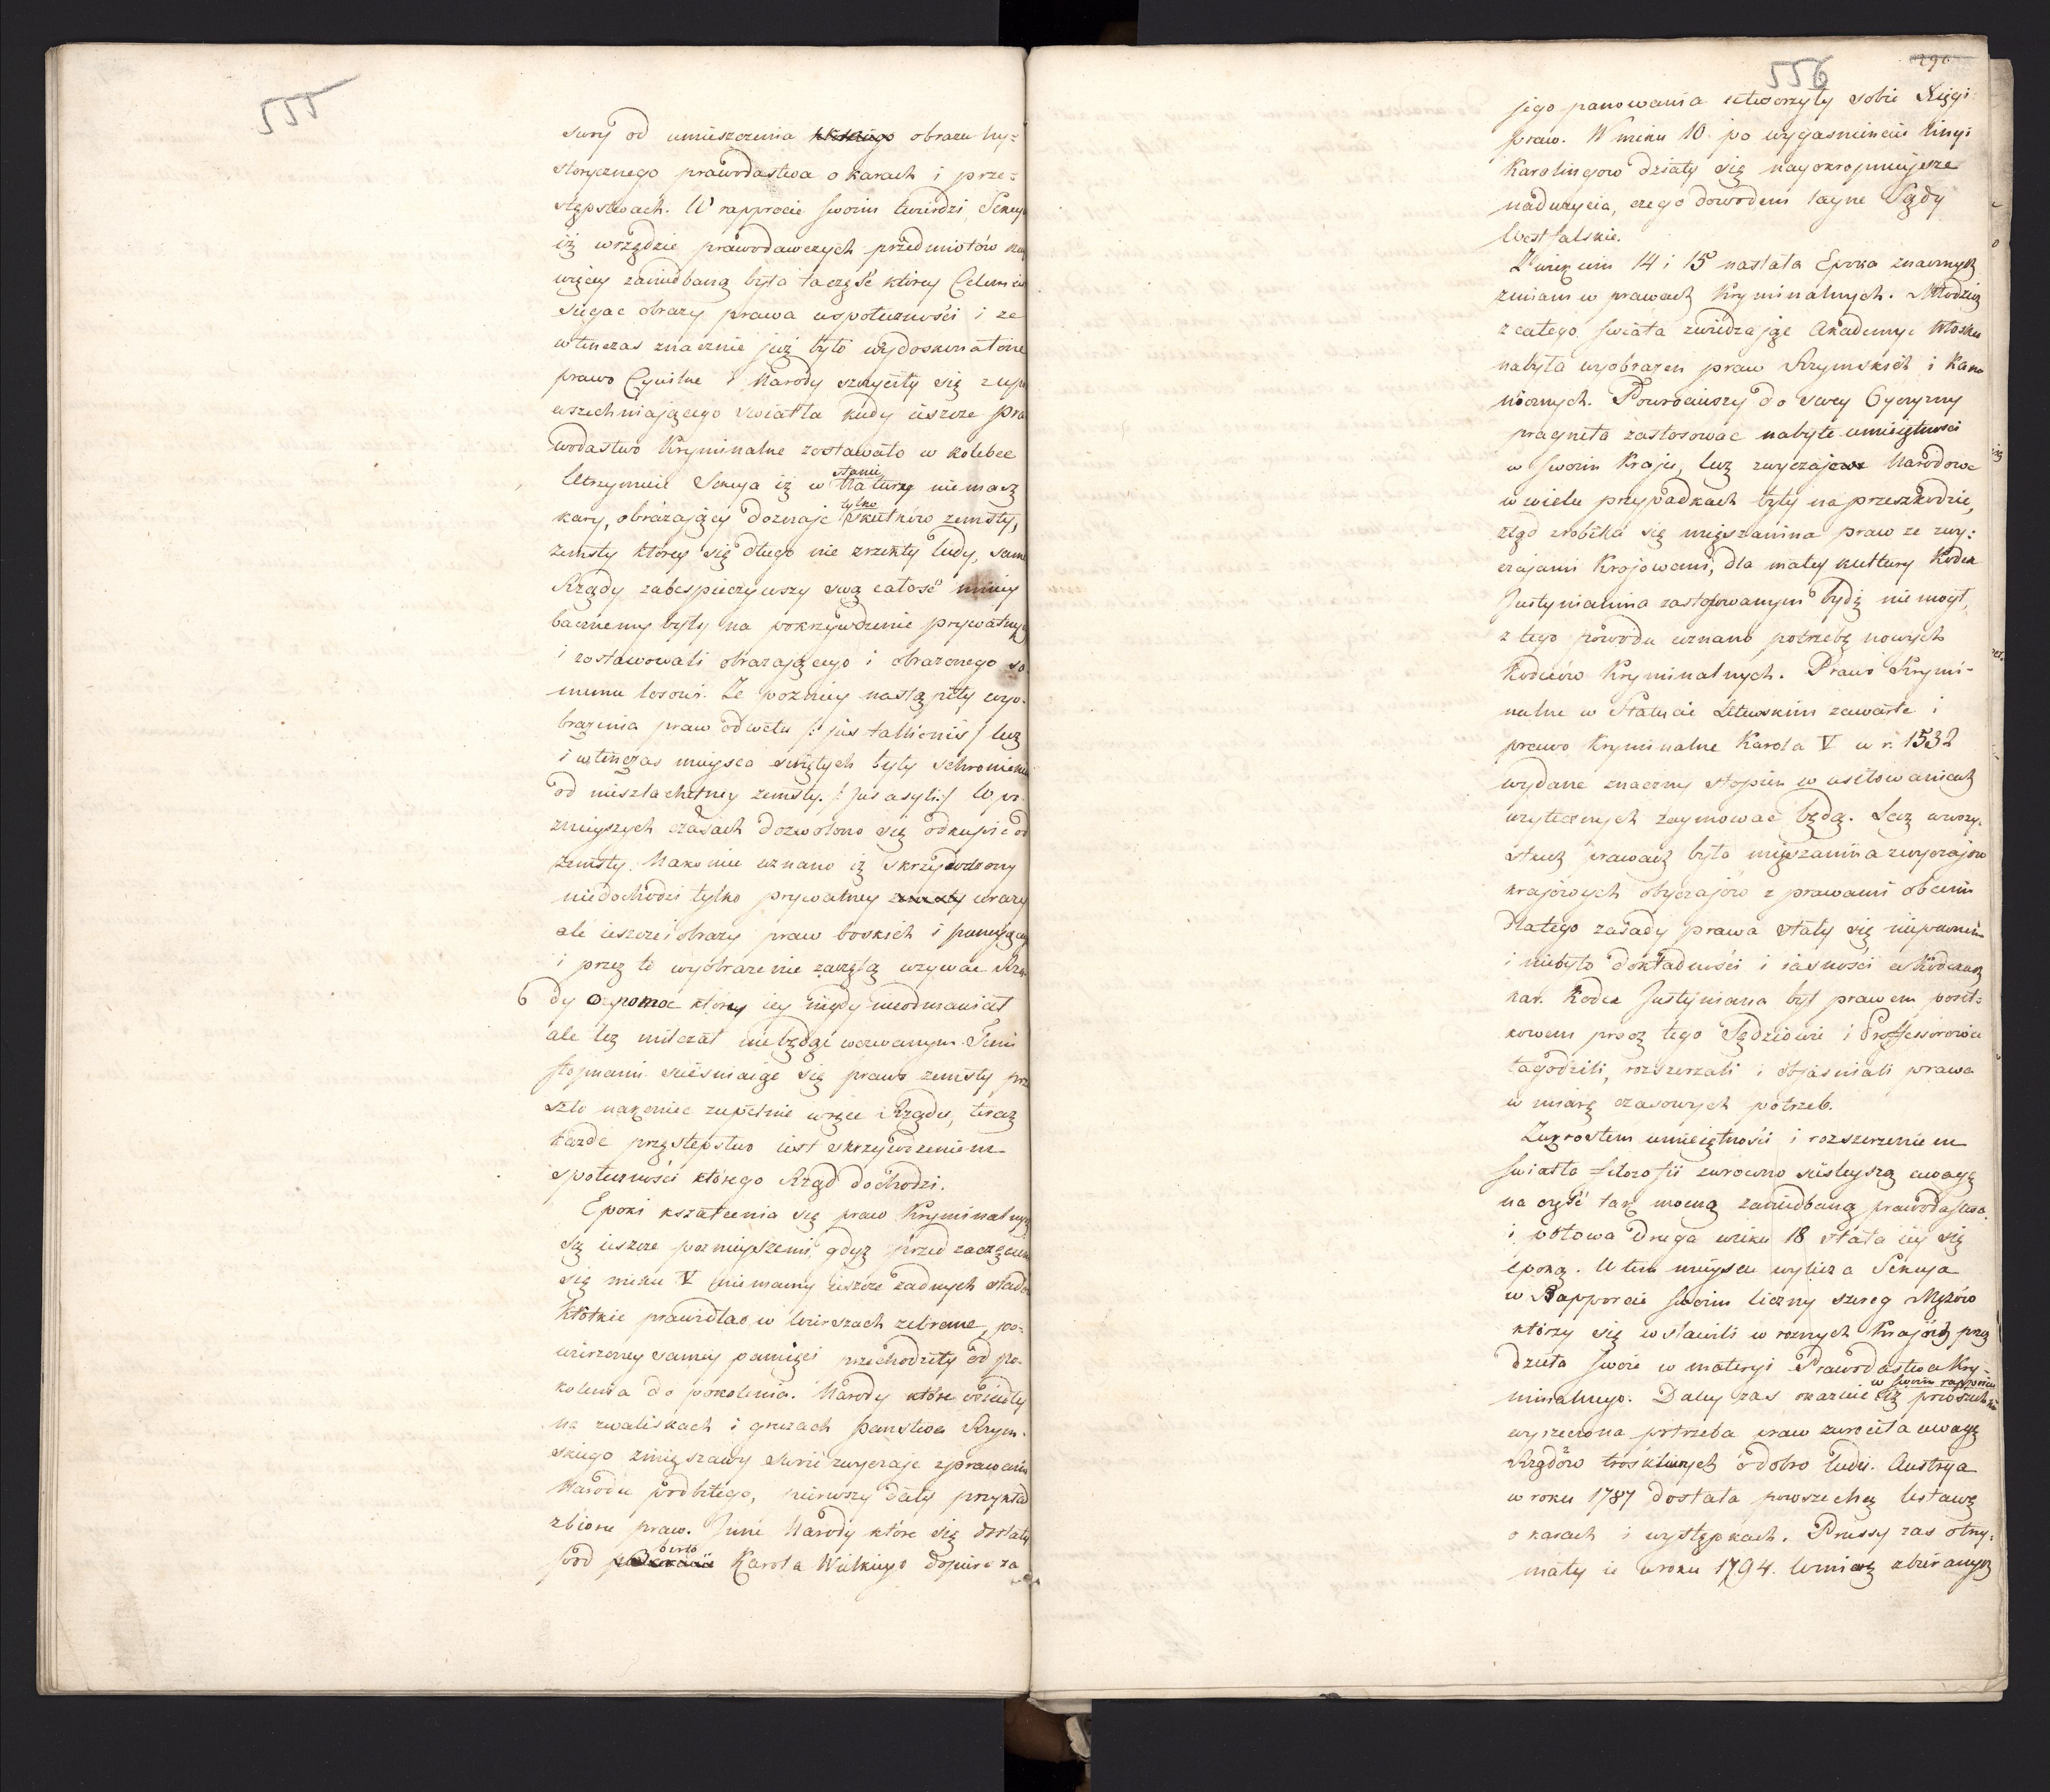 555
swey od umieszczenia obrazu hy=
storycznego prawodastwa o karach i prze=
stępstwach. W rapprocie swoim twierdzi Sekcya
iż w rzędzie prawodawczych przedmiotów nay
więcey zaniedbaną była ta część którey Celem iest
sciągac obrazy prawa uspołeczności i ze
wtenczas znacznie już było wydoskonalone
prawo Cywilne i Narody szczyciły się z upo
wszechniaiącego swiatła kiedy ieszcze pra
wodastwo Kryminalne zostawało w kolebce
Utrzymuie Sekcya iż w stanie Natury nie masz
kary, obrażaiący doznaje tylko skutków zemsty,
zemsty którey się długo nie zrzekły ludy, same
Rządy zabespieczywszy swą całość mniey
bacznemy były na pokrzywdzenie prywatnych
i zostawowali obrażaiącego i obrażonego sa
memu losowi. Ze pozniey nastąpiły wyo-
brażenia praw odwetu /: jus tallionis / lecz
i wtenczas mieysca swiętych były schronieniem
od nieszlachetney zemsty. /: jus asyli :/ W po
zniejszych czasach dozwolono się odkupić od
zemsty. Nakonie uznano iż skrzywdzony
niedochodzi tylko prywatney urazy
ale ieszcze i obrazy praw boskich i panujących
i przez to wyobrażenie zaczęto wzywac Rzą
6 dy o pomoc który iey nigdy nieodmawiał
ale też milczał niebędąc wezwanym. Temi
stopniami scieśniaiąc się prawo zemsty prze
szło nakoniec zupełnie w ręce Rządu, teraz
każde przęstepstwo iest skrzywdzeniem
społeczności którego Rząd dochodzi.
Epoki kształcenia się praw Kryminalnych
są ieszcze pozniejszemi, gdyż przed zaczęciem
się wieku V nie mamy ieszcze żadnych sladów
Krótkie prawidła w wierszach zebrane, po=
wierzoney samey pamięci przechodziły od po-
kolenia do pokolenia. Narody które osiadły
na zwaliskach i gruzach panstwa Rzym-
skiego zmięszawszy swoie zwyczaje z prawami
Narodu podbitego, pierwszy dały przykład
zbioru praw. Inne Narody które się dostały
pod berło Karola Wielkiego dopiero za
556
290
jego panowania utworzyły sobie Księgi
praw. W wieku 10 po wygasnieniu linyi
Karolingow działy się nayokropniejsze
nadużycia, czego dowodem tayne Sądy
Westfalskie.
Z wiekiem 14 i 15 nastała Epoka znacznych
zmian w prawach Kryminalnych. Młodzież
z całego swiata zwiedzając Akademye Włoskie
nabyła wyobrażen praw Rzymskich i Kano
nicznych. Powróciwszy do swey Oyczyzny
pragneła zastosować nabyte umiejętności
w swoim Kraju, lecz zwyczajowe Narodowe
w wielu przypadkach były na przeszkodzie,
ztąd zrobiła się mięszanina praw ze zwy=
czajami Krajowemi, dla małey kultury Kodex
Justyniania zastosowanym bydź nie mógł,
z tego powodu uznano potrzebę nowych
Kodexów Kryminalnych. Prawo Krymi-
nalne w Statucie Litewskim zawarte i
prawo Kryminalne Karola V w r. 1532
wydane znaczny stopień w usiłowaniach
użytecznych zaymować będą. Lecz w wszy-
stkich prawach była mięszanina zwyczajów
krajowych obyczajów z prawami obcemi
Dlatego zasady prawa stały się niepewnemi
i niebyło dokładności i iasności w Kodexach
kar. Kodex Justyniana był prawem posił=
kowem prócz tego Sędziowie i Professorowie
łagodzili, rozszerzali i objaśniali prawa
w miarę czasowych potrzeb.
Z wzrostem umieiętności i rozszerzeniem
swiatła filozofii zwrócono scisleyszą uwagę
na część tak mocną zaniedbaną prawodastwa
i połowa druga wieku 18 stała iey się
epoką. W tem mieyscu wylicza Sekcya
w Rapporcie swoim liczny szereg Mężów
którzy się wsławili w roznych Krajach przez
dzieła swoie w materyi Prawodastwa Kry-
minalnego. Daley zas okazuie w swoim rapporcie iż powszechnie
wyrzeczona potrzeba praw zwróciła uwagę
Rządów troskliwych o dobro ludu. Austrya
w roku 1787 dostała powszechną Ustawę
o karach i występkach. Prussy zas otrzy=
mały ie w roku 1794. Wmiarę zbieranych